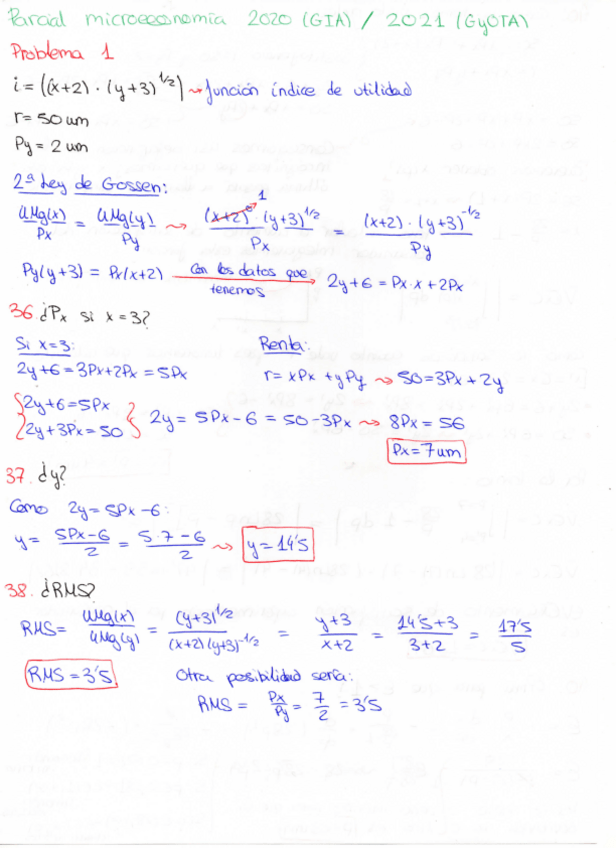 Parcial microeconomía 2020 (GIA) / 2021 (GyOTA)
Problema 1
i = ((x+2) · (y+3)^1/2) → función índice de utilidad
r = 50 um
Py = 2 um
2ª Ley de Gossen:
UMg(x)/Px = UMg(y)/Py → (x+2)^0 1 · (y+3)^1/2 / Px = (x+2) · (y+3)^-1/2 / Py
Py(y+3) = Px(x+2) con los datos que tenemos → 2y+6 = Px·x + 2Px
36. ¿Px si x=3?
Si x=3: Renta:
2y+6 = 3Px+2Px = 5Px r = xPx + yPy → 50 = 3Px + 2y
{2y+6 = 5Px
2y+3Px = 50} 2y = 5Px-6 = 50-3Px → 8Px = 56
Px = 7 um
37. ¿y?
Como 2y = 5Px-6:
y = 5Px-6/2 = 5·7-6/2 → y = 14'5
38. ¿RMS?
RMS = UMg(x)/UMg(y) = (y+3)^1/2 / (x+2)(y+3)^-1/2 = y+3/x+2 = 14'5+3/3+2 = 17'5/5
RMS = 3'5 Otra posibilidad sería:
RMS = Px/Py = 7/2 = 3'5